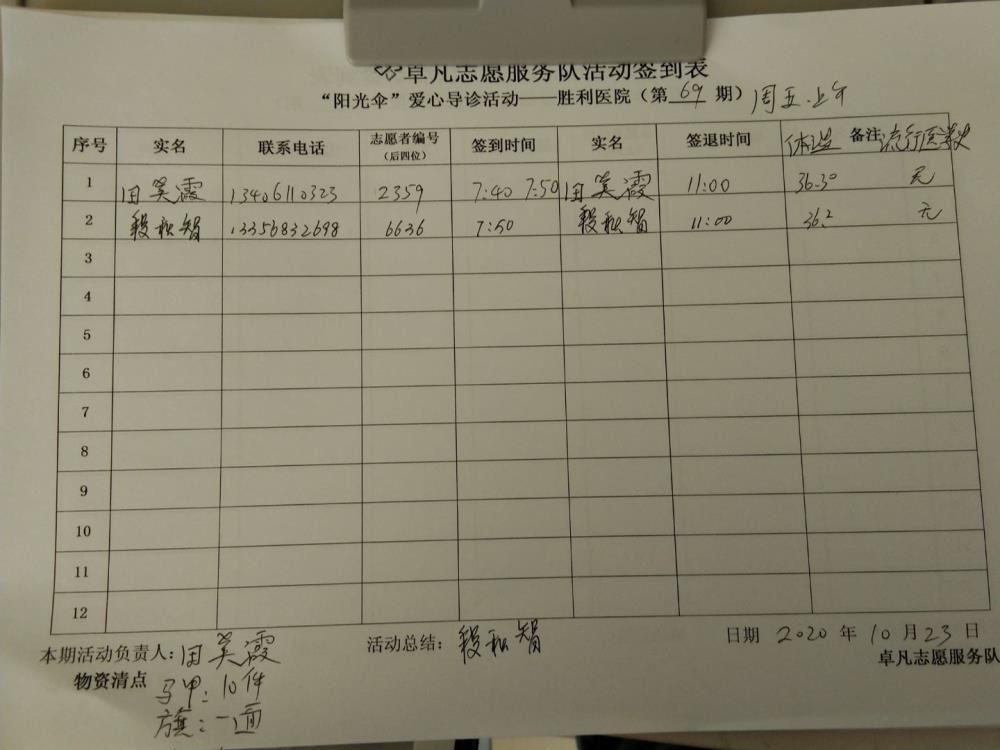 卓凡志愿服务队活动签到表
“阳光伞”爱心导诊活动——胜利医院（第 69 期） 周五.上午
序号 实名 联系电话 志愿者编号（后四位） 签到时间 实名 签退时间 体温 备注 流行医学史
1 田美霞 13406110323 2359 7:40 7:50 田美霞 11:00 36.3° 无
2 段秋智 13356832698 6636 7:50 段秋智 11:00 36.2 无
3
4
5
6
7
8
9
10
11
12
本期活动负责人：田美霞 活动总结：段秋智 日期 2020 年 10 月 23 日
物资清点 马甲：10件 卓凡志愿服务队
旗：一面